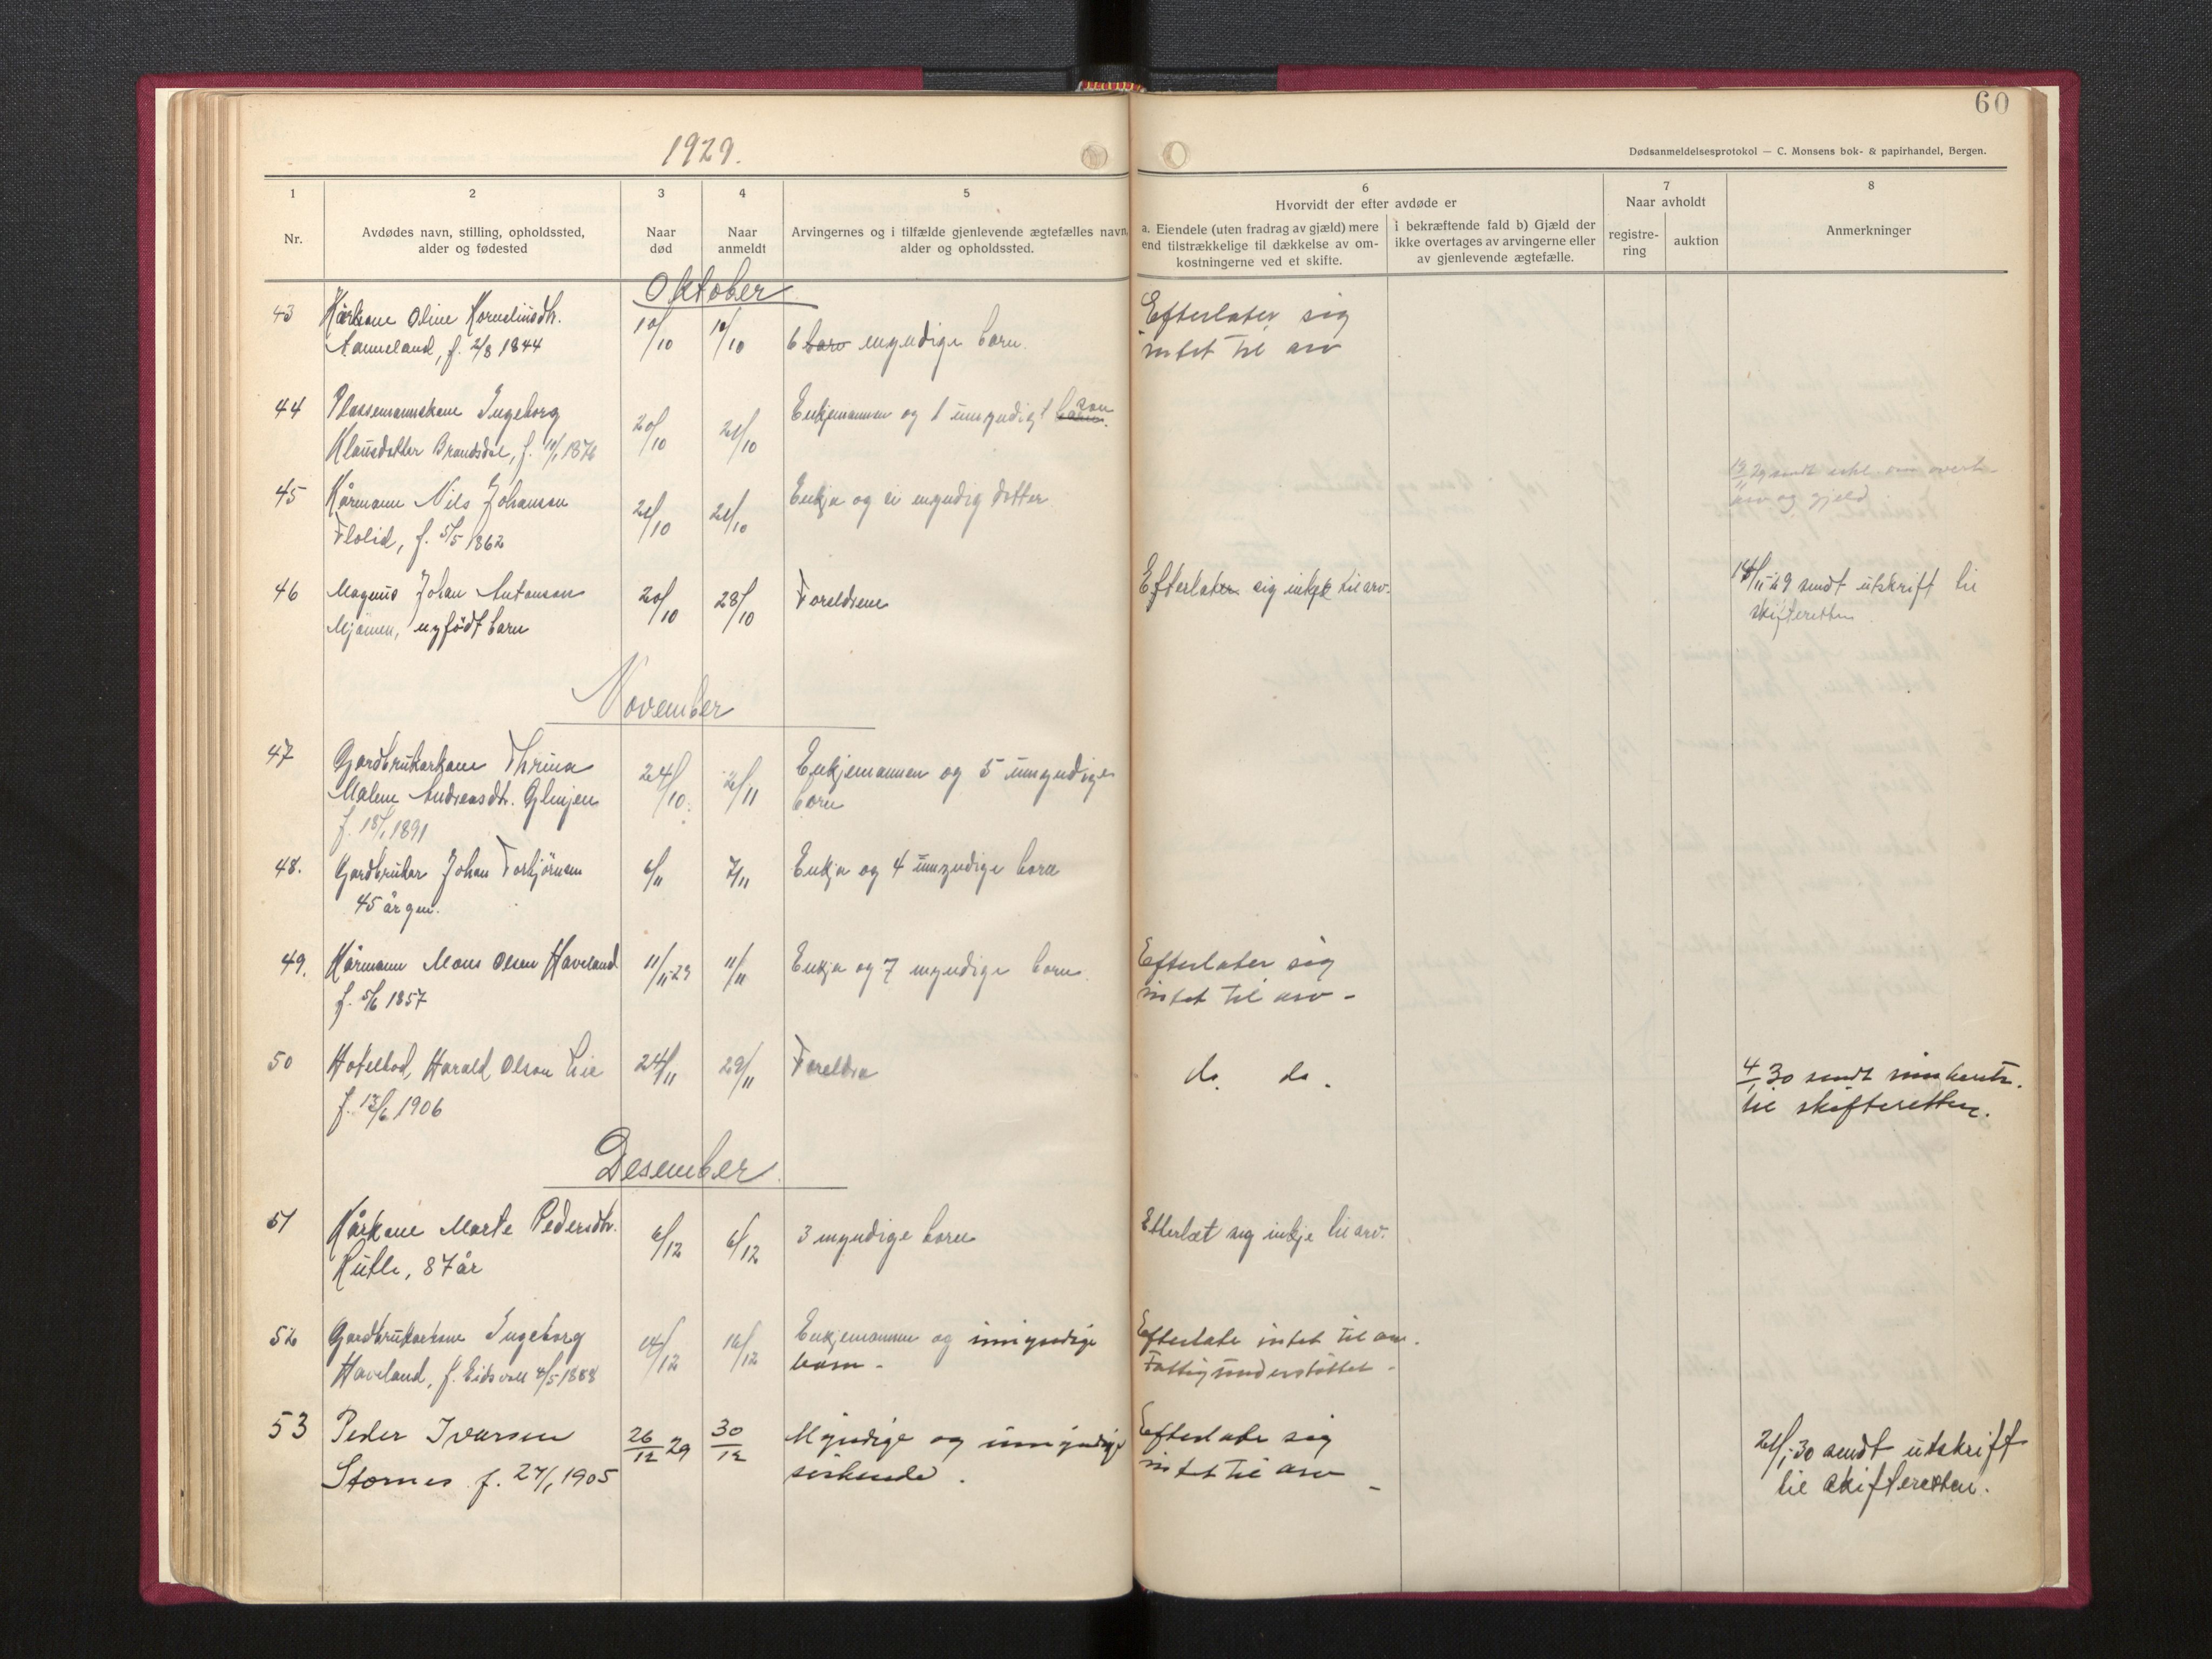 60
1929.
Dødsanmeldelsesprotokol — C. Monsens bok- & papirhandel, Bergen.
1
2
3
4
5
6
7
8
Nr.
Avdødes navn, stilling, opholdssted,
alder og fødested
Naar
død
Naar
anmeldt
Arvingernes og i tilfælde gjenlevende ægtefælles navn,
alder og opholdssted.
Hvorvidt der efter avdøde er
a. Eiendele (uten fradrag av gjæld) mere
end tilstrækkelige til dækkelse av om-
kostningerne ved et skifte.
i bekræftende fald b) Gjæld der
ikke overtages av arvingerne eller
av gjenlevende ægtefælle.
Naar avholdt
registre-
ring
auktion
Anmerkninger
Oktober
43
Kårkone Oline Korneliusdtr.
f. 2/8 1844
10/10
10/10
6 barn myndige born.
Efterlater sig
intet til arv
44
Plassemannskone Ingeborg
Klausdotter Brandsdal, f. 1876
20/10
21/10
Enkjemannen og 1 umyndig son
45
Kårmann Nils Johanson
Flolid, f. 5/5 1862
21/10
21/10
Enkja og ei myndig dotter
arv og gjeld
46
Magnus Johan Antonson
Mjømen, nyfödt barn
20/10
28/10
Foreldrene
Efterlater sig inkje til arv.
14/11-29 sendt utskrift til
skifteretten
November
47
Gardbrukarkone Thrina
Malene Andreasdtr. Glenjen
f. 18/1 1891
24/10
2/11
Enkjemannen og 5 umyndige
born
48.
Gardbrukar Johan Torbjörnsen
45 år gml.
6/11
7/11
Enkja og 4 umyndige born
49.
Kårmann Mons Olsen Haveland
f. 5/6 1857
11/11-29
11/11
Enkja og 7 myndige born.
Efterlater sig
intet til arv -
50
Hotellbud, Harald Olson Lie
f. 13/6 1906
24/11
29/11
Foreldra
do. do.
4/1 30 sendt
til skifteretten.
Desember
51
Kårkone Marte Pedersdtr.
Hutle, 87 år
6/12
6/12
3 myndige born
Etterlæt seg inkje til arv.
52
Gardbrukarkone Ingeborg
Haveland, f. Eidsvoll 4/5 1888
14/12
16/12
Enkjemannen og umyndige
barn -
Efterlate intet til arv.
Fattigunderstöttet -
53
Peder Ivarsen
Stornes f. 27/1 1905
26/12 29
30/12
Myndige og umyndige
söskende.
Efterlate sig
intet til arv -
21/1-30 sendt utskrift
til skifteretten.